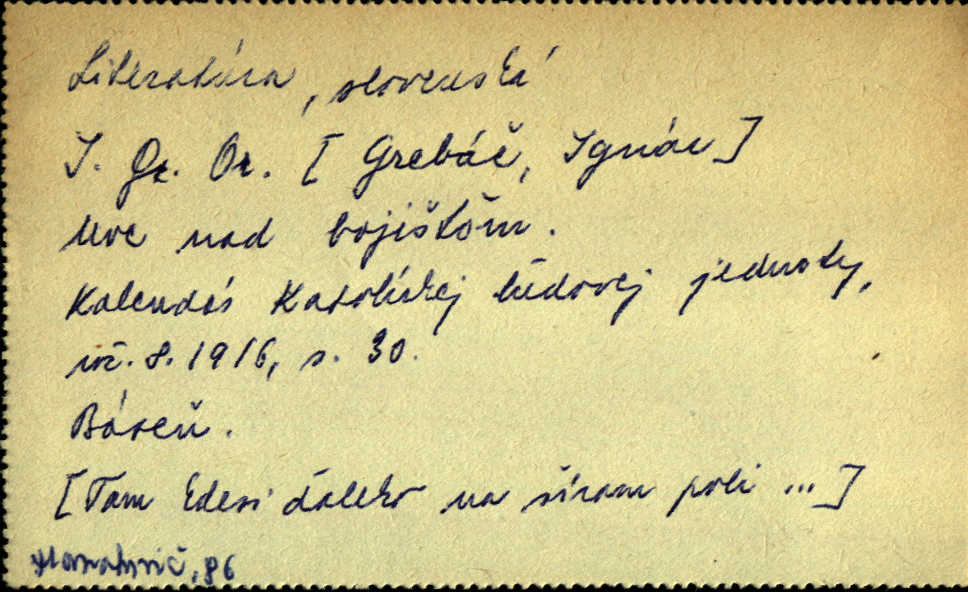 Literatúra, slovenská
I. Gr. Or. [Grebáč, Ignác]
Noc nad bojišťom.
Kalendár Katolíckej ľudovej jednoty,
roč. 8. 1916, s. 30.
Báseň.
[Tam kdesi ďaleko na šírom poli ...]
86